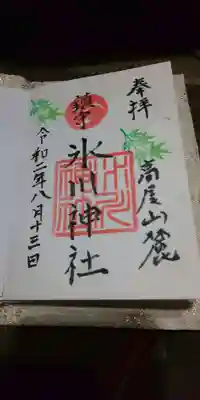 奉拝
高尾山麓
鎮守
氷川神社
令和二年八月十三日